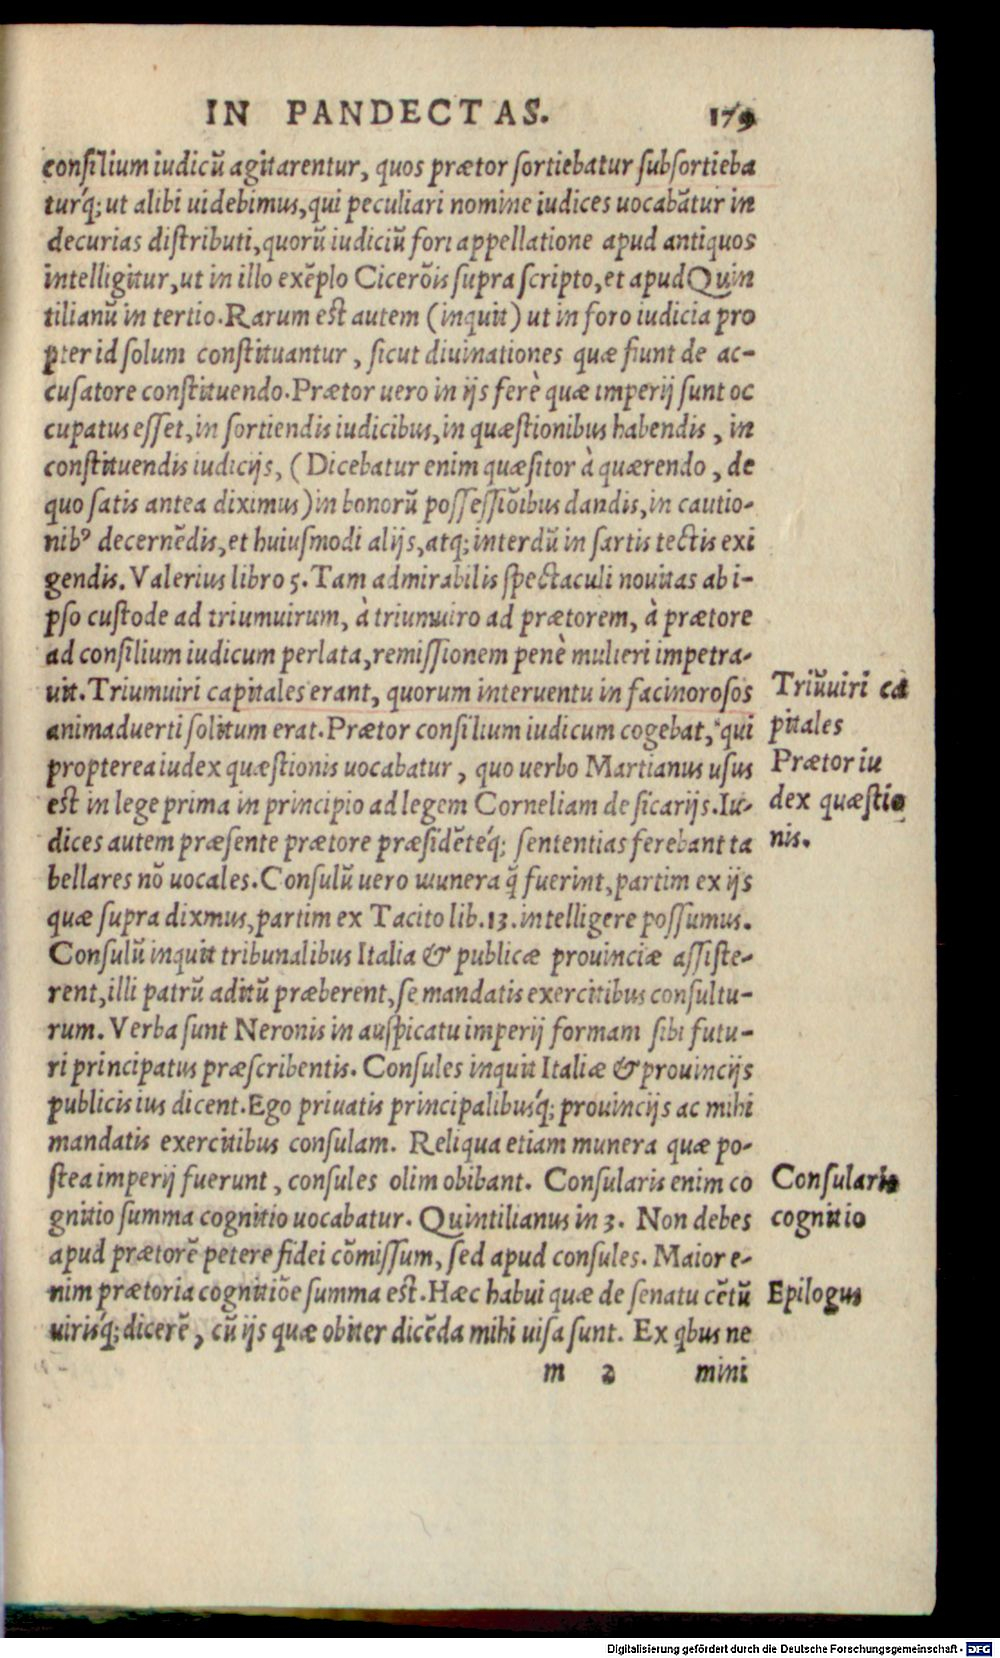 IN PANDECTAS. 179
consilium iudicũ agitarentur, quos prætor sortiebatur subsortieba
turq́; ut alibi uidebimus, qui peculiari nomine iudices uocabãtur in
decurias distributi, quorũ iudiciũ fori appellatione apud antiquos
intelligitur, ut in illo exẽplo Cicerõis supra scripto, et apud Quin
tilianũ in tertio. Rarum est autem (inquit) ut in foro iudicia pro
pter id solum constituantur, sicut diuinationes quæ fiunt de ac-
cusatore constituendo. Prætor uero in ijs ferè quæ imperij sunt oc
cupatus esset, in sortiendis iudicibus, in quæstionibus habendis, in
constituendis iudicijs, (Dicebatur enim quæsitor à quærendo, de
quo satis antea diximus) in bonorũ possessiõibus dandis, in cautio-
nibꝰ decernẽdis, et huiusmodi alijs, atq; interdũ in sartis tectis exi
gendis. Valerius libro 5. Tam admirabilis spectaculi nouitas ab i-
pso custode ad triumuirum, à triumuiro ad prætorem, à prætore
ad consilium iudicum perlata, remissionem penè mulieri impetra-
uit. Triumuiri capitales erant, quorum interuentu in facinorosos
animaduerti solitum erat. Prætor consilium iudicum cogebat, qui
propterea iudex quæstionis uocabatur, quo uerbo Martianus usus
est in lege prima in principio ad legem Corneliam de sicarijs. Iu-
dices autem præsente prætore præsidẽteq́; sententias ferebant ta
bellares nõ uocales. Consulũ uero munera q̃ fuerint, partim ex ijs
quæ supra diximus, partim ex Tacito lib. 13. intelligere possumus.
Consulũ inquit tribunalibus Italia & publicæ prouinciæ assiste-
rent, illi patrũ aditũ præberent, se mandatis exercitibus consultu-
rum. Verba sunt Neronis in auspicatu imperij formam sibi futu-
ri principatus præscribentis. Consules inquit Italiæ & prouincijs
publicis ius dicent. Ego priuatis principalibusq́; prouincijs ac mihi
mandatis exercitibus consulam. Reliqua etiam munera quæ po-
stea imperij fuerunt, consules olim obibant. Consularis enim co
gnitio summa cognitio uocabatur. Quintilianus in 3. Non debes
apud prætorẽ petere fidei cõmissum, sed apud consules. Maior e-
nim prætoria cognitiõe summa est. Hæc habui quæ de senatu cẽtũ
uirisq́; dicerẽ, cũ ijs quæ obiter dicẽda mihi uisa sunt. Ex qbus ne
m 2 mini
Triũuiri ca
pitales
Prætor iu
dex quæstio
nis.
Consularis
cognitio
Epilogus
Digitalisierung gefördert durch die Deutsche Forschungsgemeinschaft - DFG